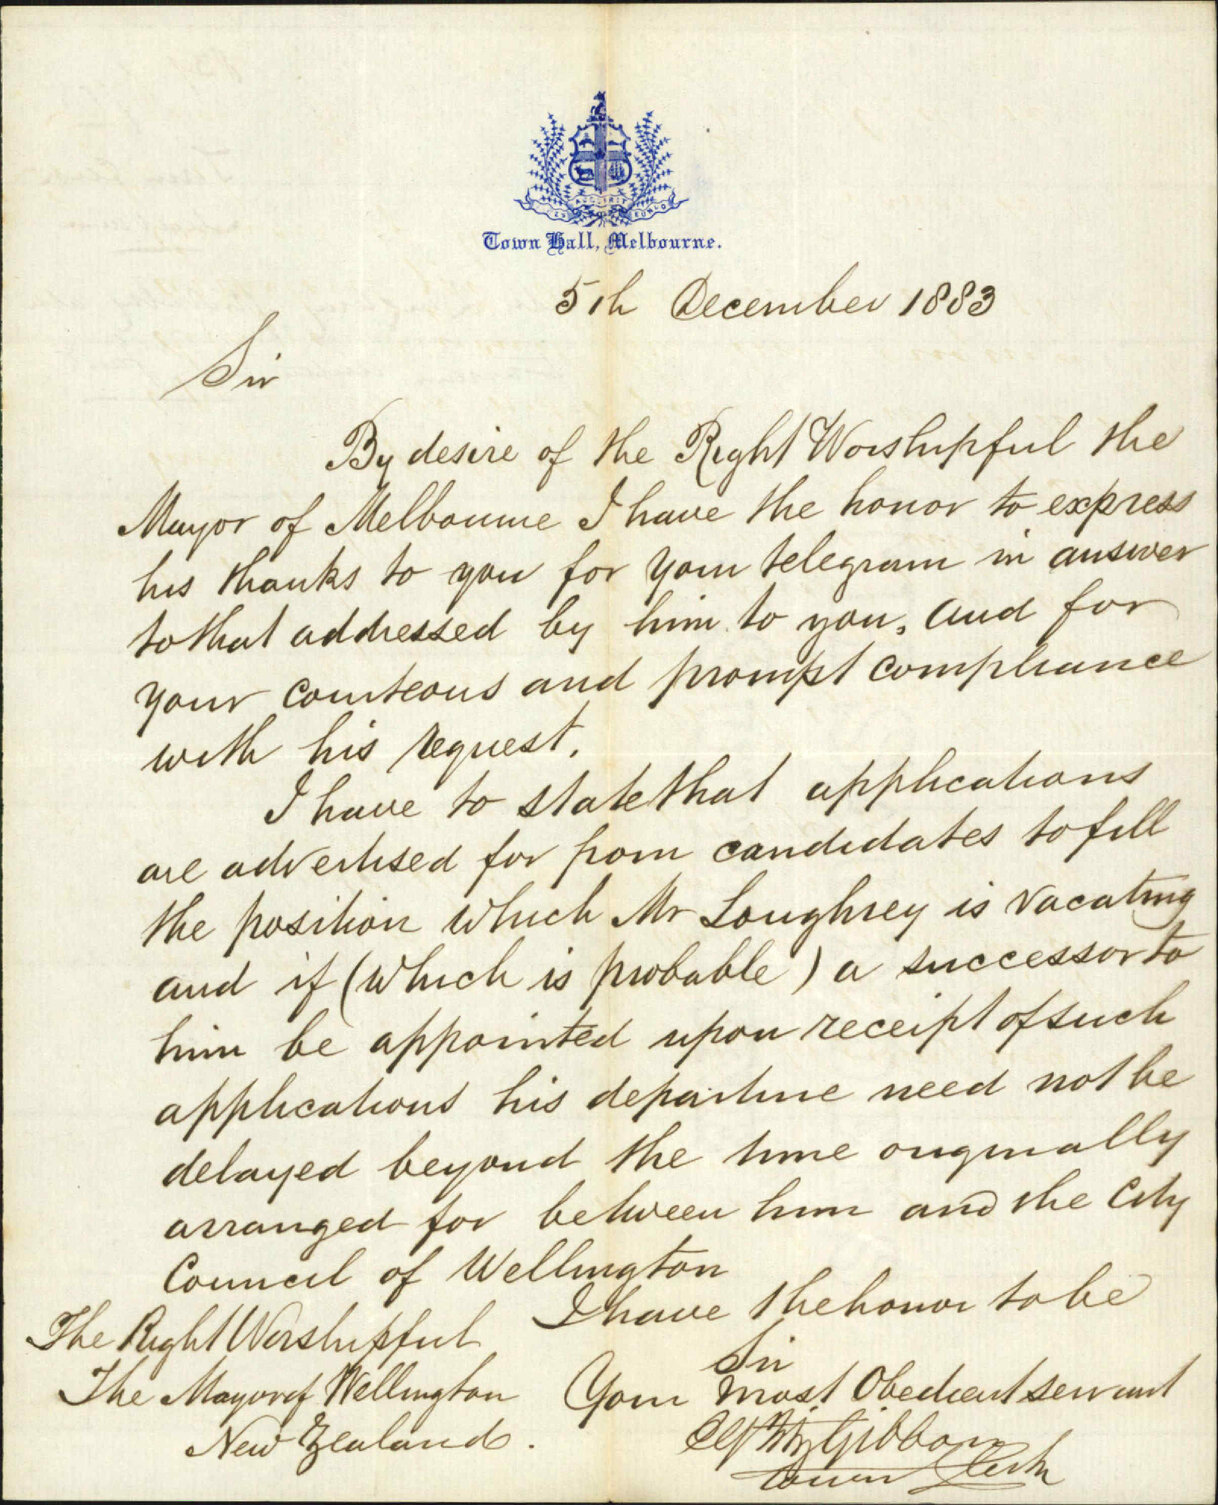 Town Hall, Melbourne.
5th December 1883
Sir
By desire of the Right Worshipful the
Mayor of Melbourne I have the honor to express
his thanks to you for your telegram in answer
to that addressed by him to you, and for
your courteous and prompt compliance
with his request.
I have to state that applications
are advertised for from candidates to fill
the position which Mr Loughrey is vacating
and if (which is probable) a successor to
him be appointed upon receipt of such
applications his departure need not be
delayed beyond the time originally
arranged for between him and the City
Council of Wellington
I have the honor to be
Sir
Your most Obedient servant
FitzGibbon
Town Clerk
The Right Worshipful
The Mayor of Wellington
New Zealand.